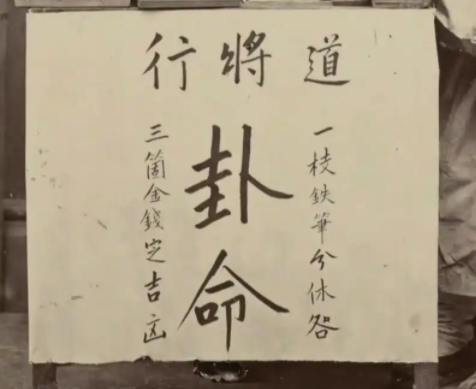 道將行
一枝鉄筆分休咎
卦命
三箇金錢定吉凶